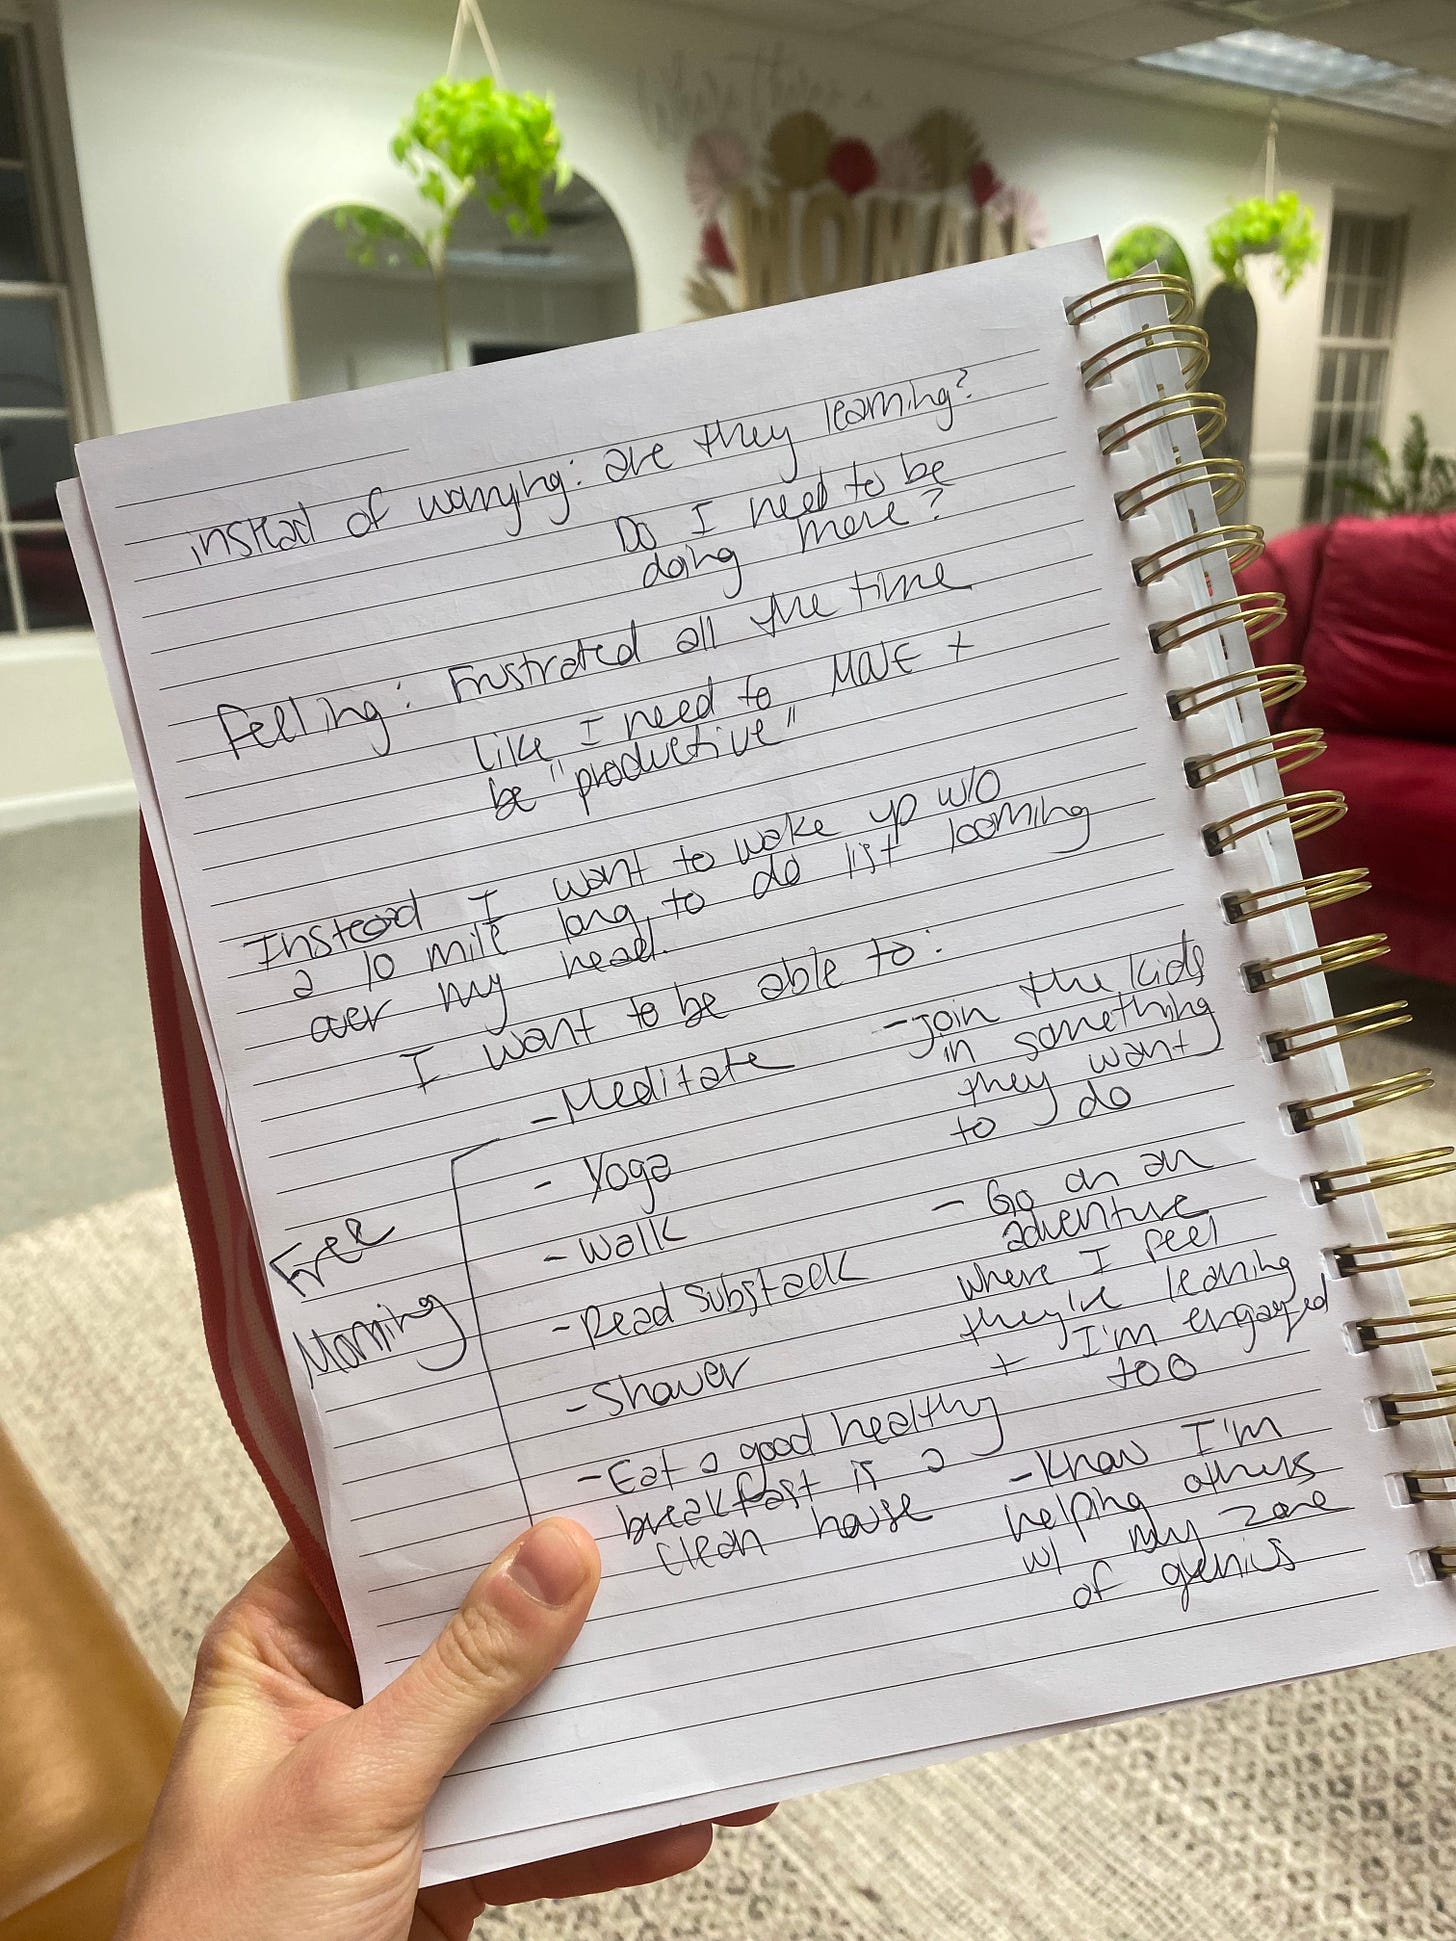 Where there's a
WOMAN
instead of worrying: are they learning?
Do I need to be
doing more?
Feeling: Frustrated all the time
like I need to MOVE +
be "productive"
Instead I want to wake up w/o
a 10 mile long to do list looming
over my head.
I want to be able to:
Free
Morning
- Meditate
- Yoga
- Walk
- Read Substack
- Shower
- Eat a good healthy
breakfast in a
clean house
- join the kids
in something
they want
to do
- Go on an
adventure
where I feel
they're learning
+ I'm engaged
too
- Know I'm
helping others
w/ my zone
of genius